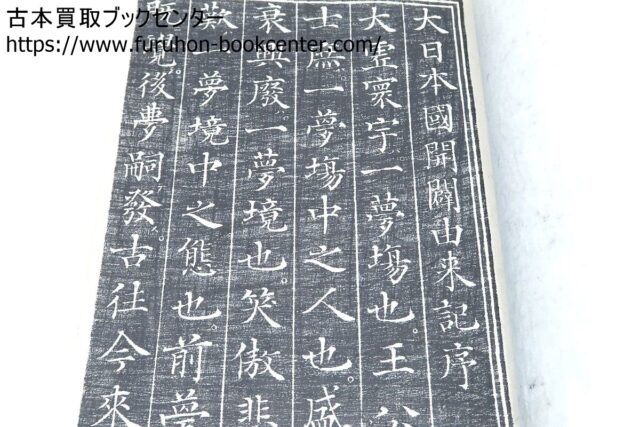 古本買取ブックセンター
https://www.furuhon-bookcenter.com/
大日本國開闢由来記序
大虗寰宇一夢場也。王公
士庶一夢場中之人也。盛
衰興廢一夢境也。笑傲悲
歎。夢境中之態也。前夢
覺。後夢嗣發。古往今來